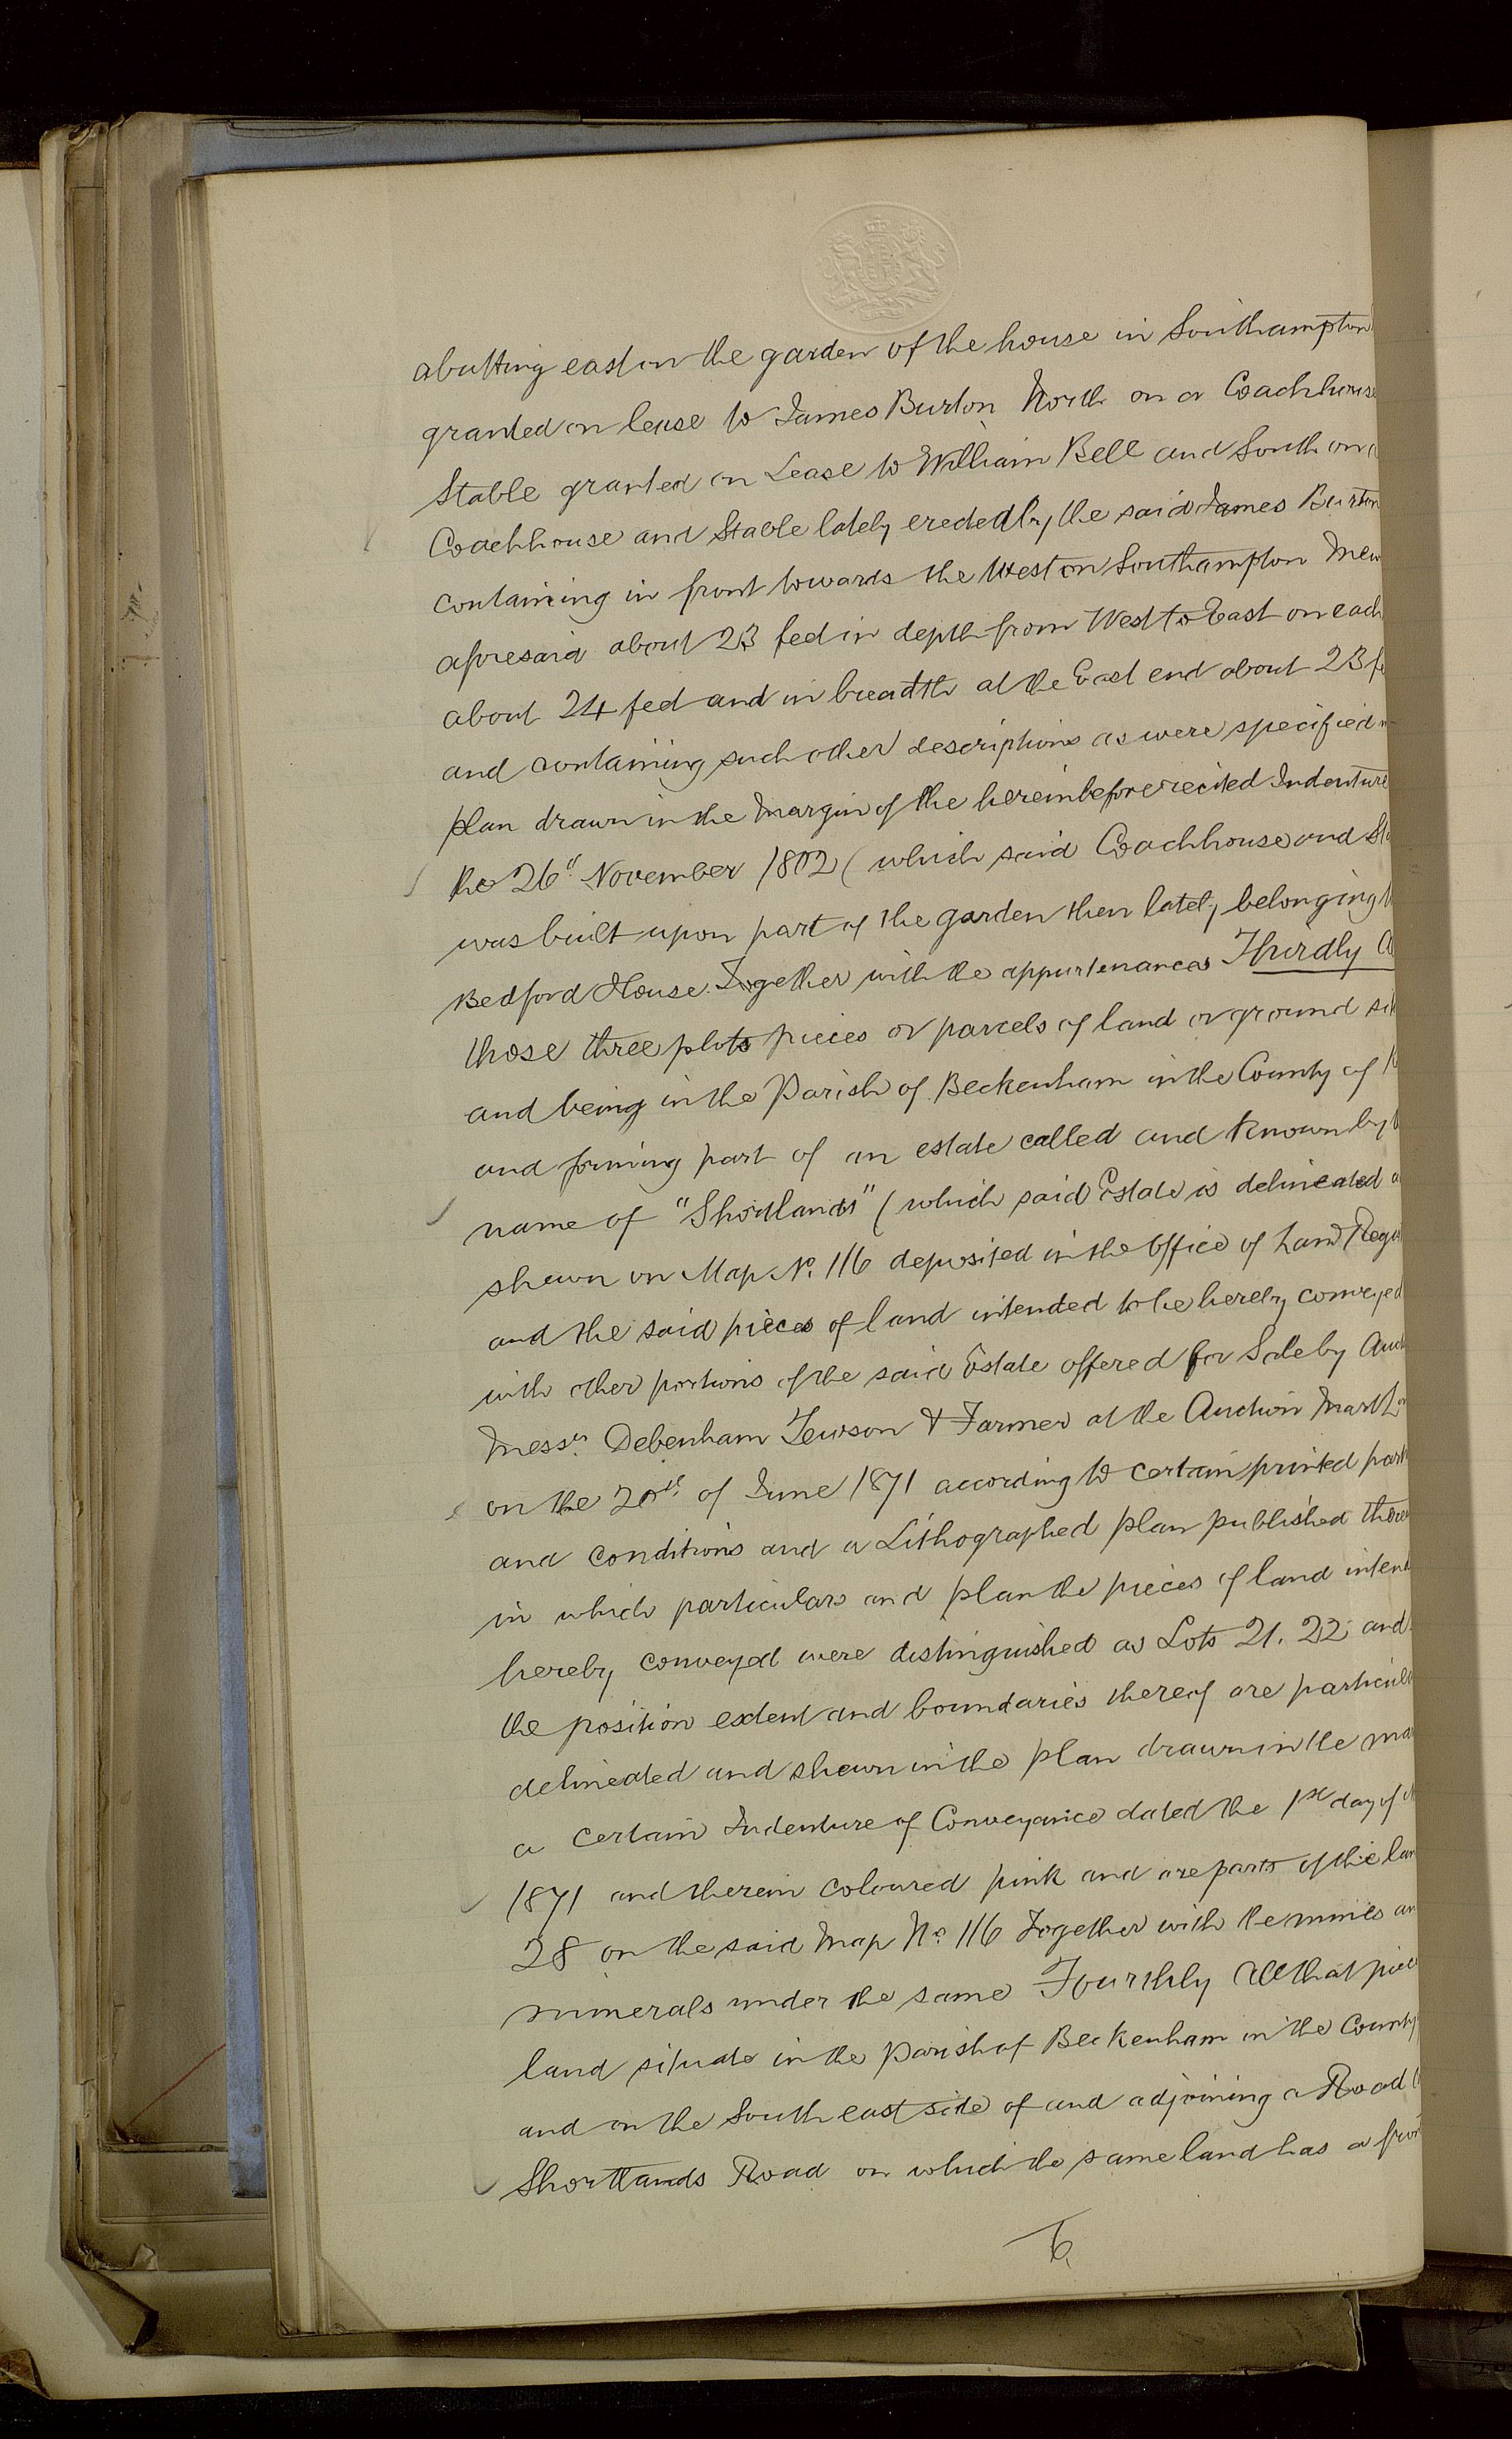 abutting east on the garden of the house in Southampton
granted on lease to James Burton North on a Coachhouse
Stable granted on Lease to William Bell and South on a
Coachhouse and Stable lately erected by the said James Burton
containing in front towards the West on Southampton Mew
aforesaid about 23 feet in depth from West to East on each
about 24 feet and in breadth at the East end about 23 fe
and containing such other descriptions as were specified
plan drawn in the Margin of the hereinbefore recited Indenture
the 26th November 1802 (which said Coachhouse and Sta
was built upon part of the garden then lately belonging t
Bedford House. Together with the appurtenances Thirdly A
those three plots pieces or parcels of land or ground sit
and being in the Parish of Beckenham in the County of K
and forming part of an estate called and known by t
name of "Shortlands" (which said Estate is delineated a
shewn on Map No. 116 deposited in the Office of Land Regis
and the said pieces of land intended to be hereby conveyed
with other portions of the said Estate offered for Sale by Auct
Messrs. Debenham Tewson & Farmer at the Auction Mart Lo
on the 20th. of June 1871 according to certain printed part
and conditions and a Lithographed plan published there
in which particulars and plan the pieces of land intend
hereby conveyed were distinguished as Lots 21. 22 and
the position extent and boundaries thereof are particul
delineated and shewn in the plan drawn in the mar
a certain Indenture of Conveyance dated the 1st day of
1871 and therein coloured pink and are parts of the lan
28 on the said Map No. 116 Together with the mines an
minerals under the same Fourthly All that piece
land situate in the parish of Beckenham in the County
and on the South east side of and adjoining a Road
Shortlands Road on which the same land has a fron
6.